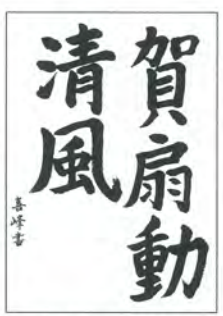 賀扇動
清風
喜峰書